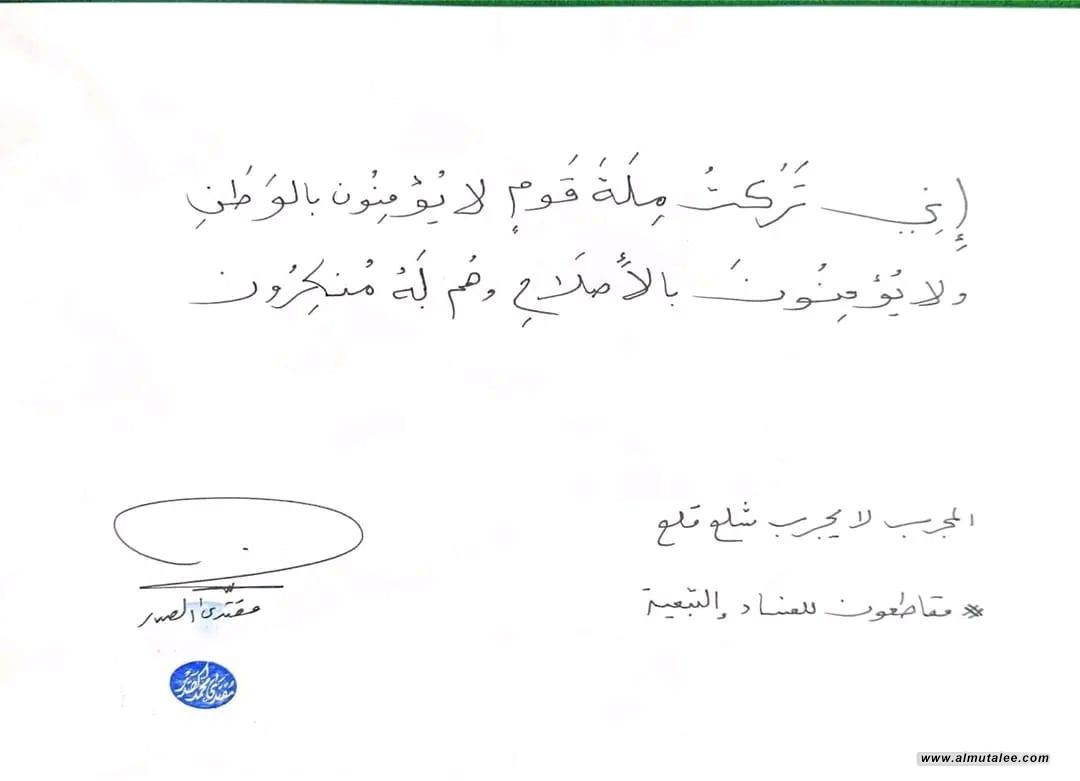 (إِنِي تَرَكتُ مِلَةَ قَومٍ لا يُؤمِنُون بالوَطَنِ
ولا يُؤمِنُونَ بالأَصلَاحِ وهُم لَهُ مُنكِرُون
المجرب لا يجرب شلع قلع
* مقاطعون للفساد والتبعية
مقتدى الصدر
مقتدى محمد الصدر
www.almutalee.com